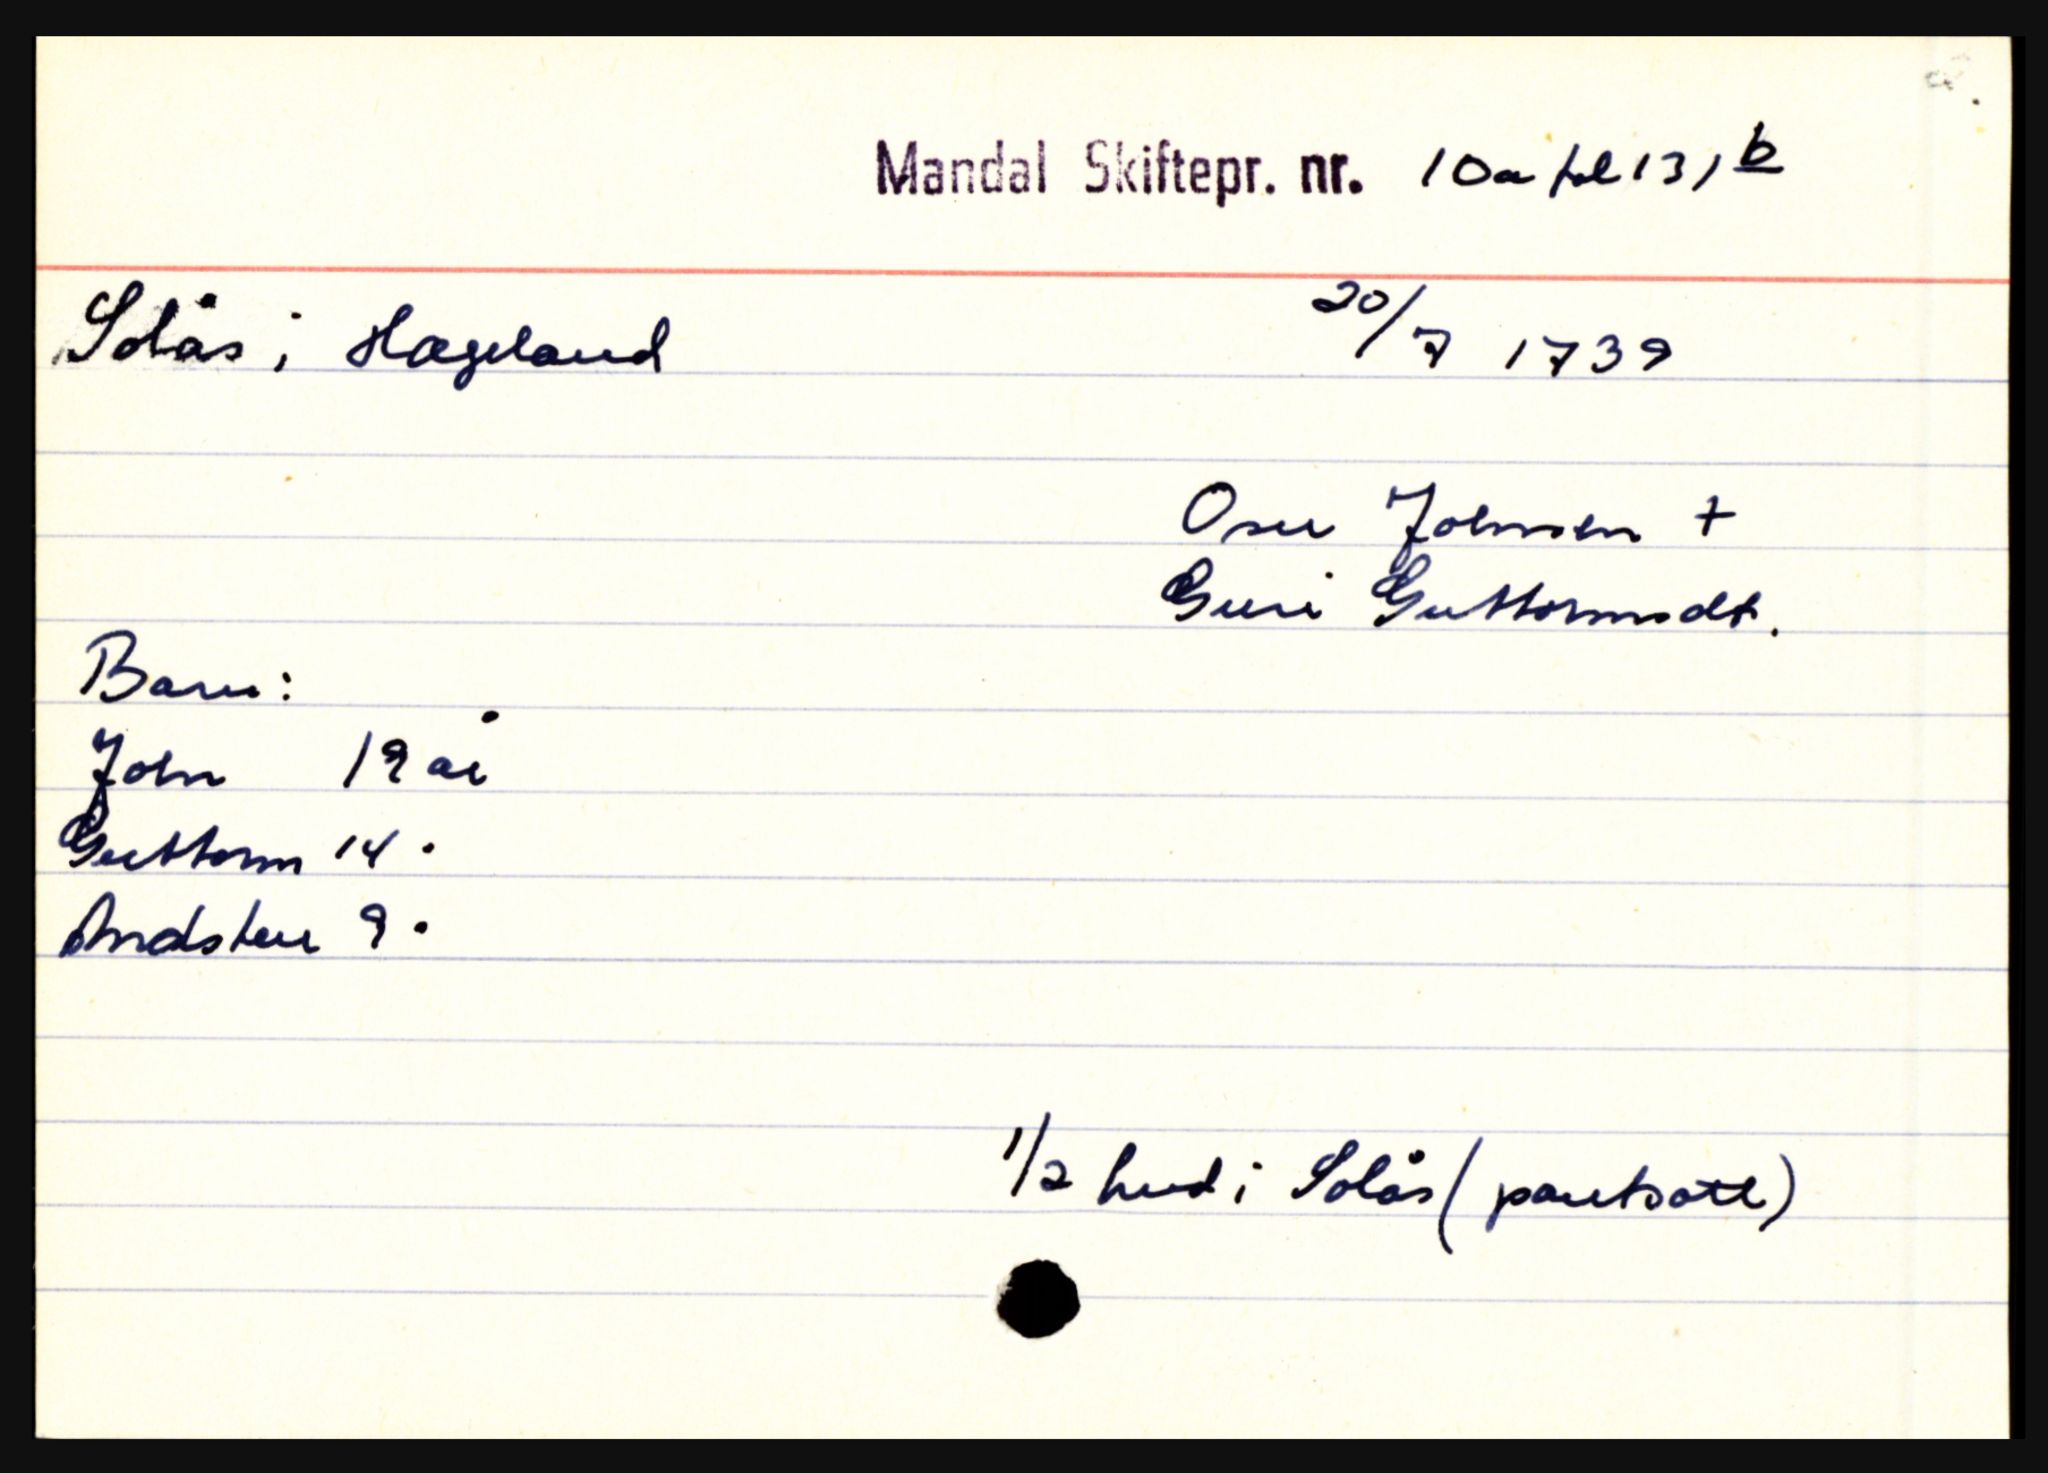 Mandal Skiftepr. nr. 10a fol 131 b
Solås i Hægeland 20/7 1739
Osu Johnsen +
Guri Guttormsdt.
Barn:
John 19 år
Guttorm 14 "
Andsten 9 "
1/2 hud i Solås (pantsatt)